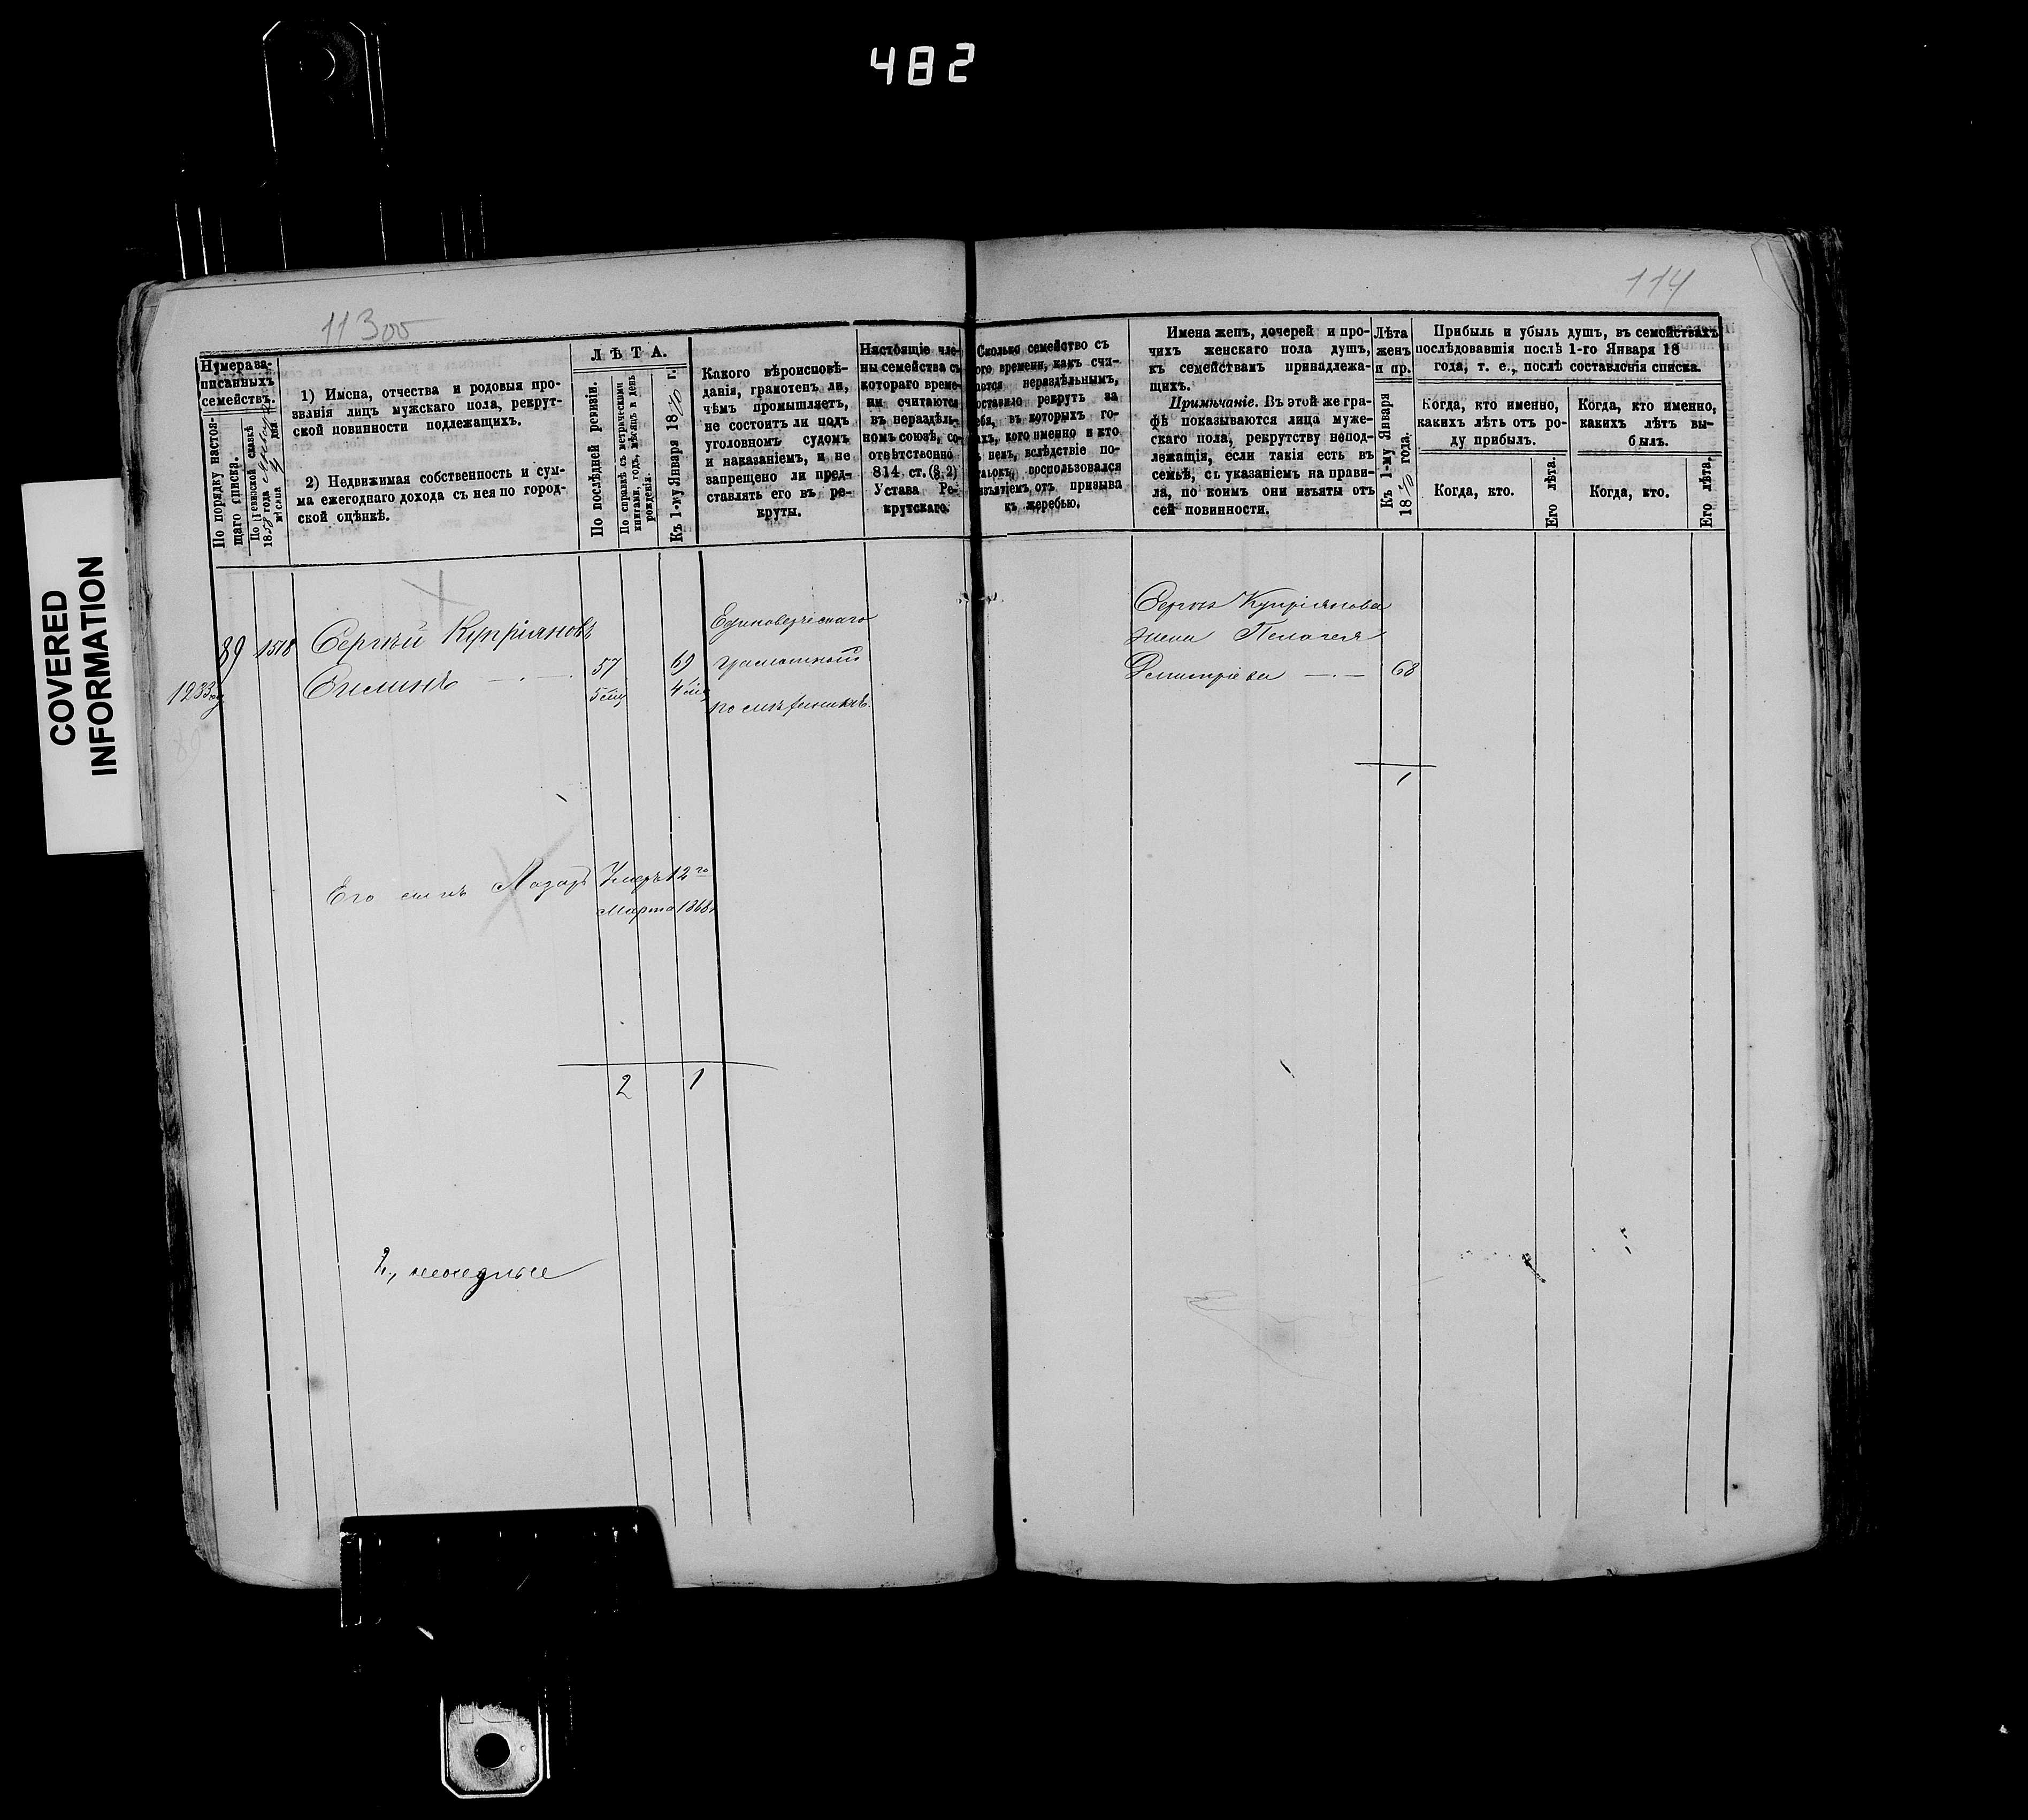 482
COVERED
INFORMATION
113об
114
Нумера за-
писанныхъ
семействъ.
По порядку настоя-
щаго списка.
По ревизской сказкѣ
1858 года
мѣсяца дня
1) Имена, отчества и родовыя про-
званія лицъ мужскаго пола, рекрут-
ской повинности подлежащихъ.
2) Недвижимая собственность и сум-
ма ежегоднаго дохода съ нея по город-
ской оцѣнкѣ.
ЛѢТА.
По послѣдней ревизіи.
По справкѣ съ метрическими
книгами, годъ, мѣсяцъ и день
рожденія.
Къ 1-му Января 1870 г.
Какого вѣроисповѣ-
данія, грамотенъ ли,
чѣмъ промышляетъ,
не состоитъ ли подъ
уголовномъ судомъ
и наказаніемъ, и не
запрещено ли пред-
ставлять его въ ре-
круты.
Настоящіе чле-
ны семейства съ
котораго време-
ни считаются
въ нераздѣль-
номъ союзѣ, со-
отвѣтственно
814 ст. (§. 2)
Устава Ре-
крутскаго.
Сколько семейство съ
ого времени, какъ счи-
тается нераздѣльнымъ,
оставило рекрутъ за
ебя, въ которыхъ го-
ахъ, кого именно и кто
ъ немъ, вслѣдствіе по-
тавокъ, воспользовался
изъятіемъ отъ призыва
къ жеребью.
Имена женъ, дочерей и про-
чихъ женскаго пола душъ,
къ семействамъ принадлежа-
щихъ.
Примѣчаніе. Въ этой же гра-
фѣ показываются лица муже-
скаго пола, рекрутству непод-
лежащія, если такія есть въ
семьѣ, съ указаніемъ на прави-
ла, по коимъ они изъяты отъ
сей повинности.
Лѣта
женъ
и пр.
Къ 1-му Января
1870 года.
Прибыль и убыль душъ, въ семействахъ
послѣдовавшія послѣ 1-го Января 18
года, т. е., послѣ составленія списка.
Когда, кто именно,
какихъ лѣтъ отъ ро-
ду прибылъ.
Когда, кто.
Его лѣта.
Когда, кто именно,
какихъ лѣтъ вы-
былъ.
Когда, кто.
Его лѣта.
89 1518 Сергѣй Купріяновъ
57 69
5 4
Единовѣрческаго
грамотный
Сергѣя Купріянова
жена Пелагея
Дмитріева 68
1
Его сынъ Лазарь Умеръ 12го
Марта 1868
2 1
2,